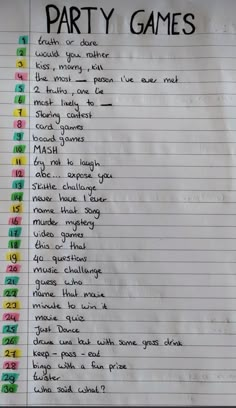 PARTY GAMES
1 truth or dare
2 would you rather
3 kiss, marry, kill
4 the most __ person i've ever met
5 2 truths, one lie
6 most likely to __
7 Staring contest
8 card games
9 board games
10 MASH
11 try not to laugh
12 abc... expose you
13 Skittle challenge
14 never have I ever
15 name that song
16 murder mystery
17 video games
18 this or that
19 40 questions
20 music challange
21 guess who
22 name that movie
23 minute to win it
24 movie quiz
25 Just Dance
26 uno but with some gross drink
27 keep - pass - eat
28 bingo with a fun prize
29 twister
30 who said what?